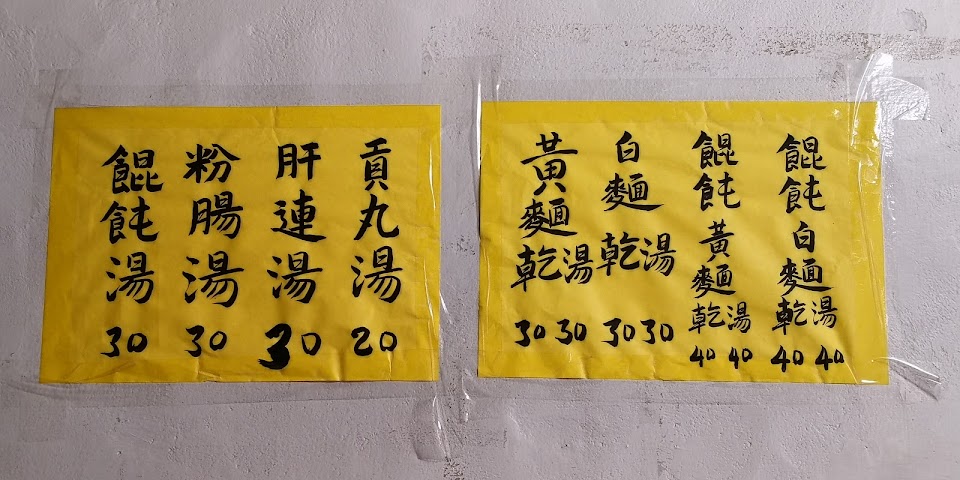 餛飩白麵乾湯
40 40
餛飩黃麵乾湯
40 40
白麵乾湯
30 30
黃麵乾湯
30 30
貢丸湯
20
肝連湯
30
粉腸湯
30
餛飩湯
30